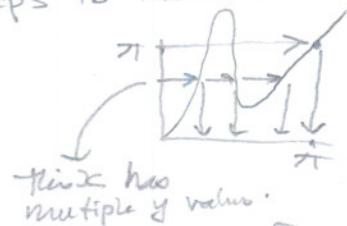 π
π
this x has
multiple y value.